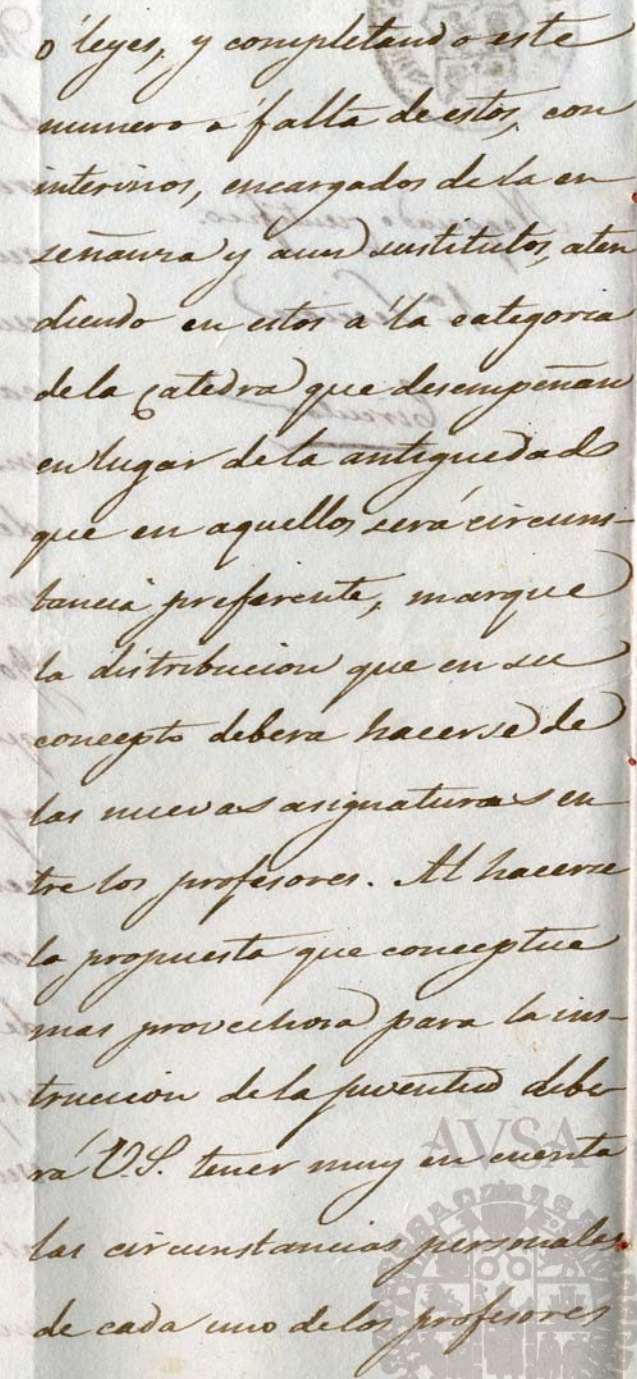 o' leyes, y completando este
numero a' falta de estos, con
interinos, encargados de la en
señanza y aun sustitutos, aten
diendo en estos a' la categoria
de la catedra que desempeñan
en lugar de la antiguedad
que en aquellos será circuns-
tancia preferente, marque
la distribucion que en su
concepto debera hacerse de
las nuevas asignaturas en
tre los profesores. Al hacerse
la propuesta que conceptue
mas provechosa para la ins-
truccion de la juventud debe
rá V.S. tener muy en cuenta
las circunstancias personales
de cada uno de los profesores
AVSA